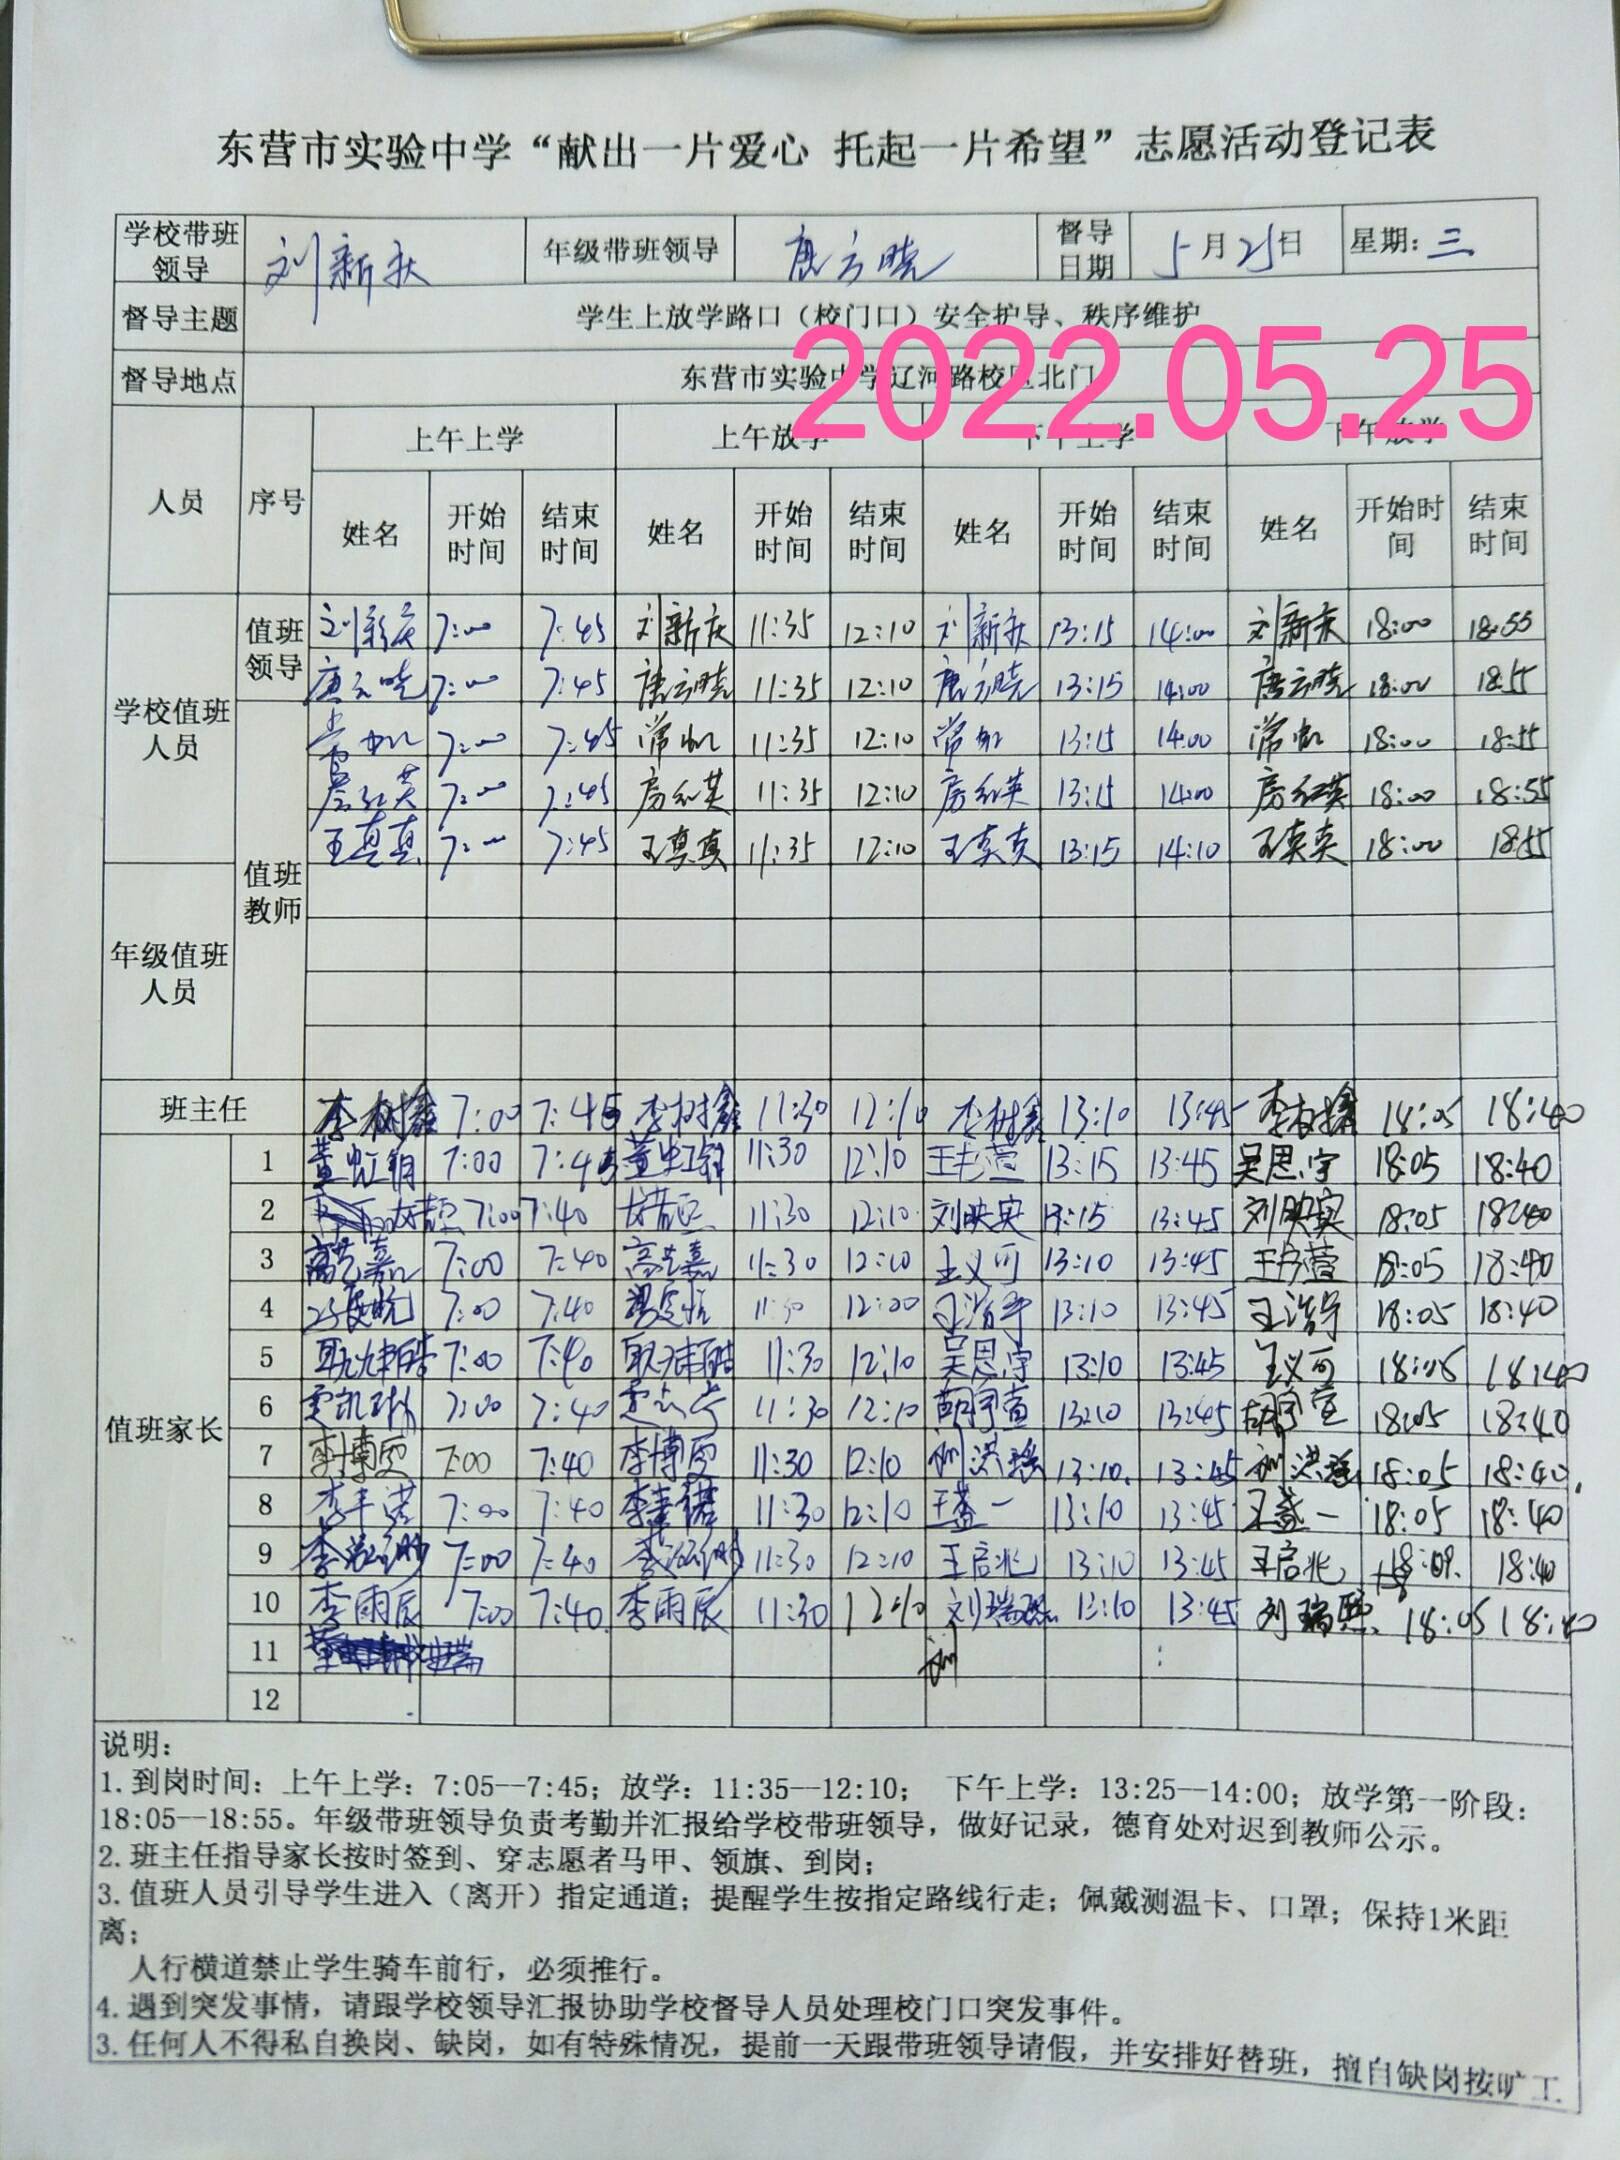 东营市实验中学“献出一片爱心 托起一片希望”志愿活动登记表
学校带班领导 刘新庆 年级带班领导 唐云晓 督导日期 5月25日 星期:三
督导主题 学生上放学路口（校门口）安全护导、秩序维护
督导地点 东营市实验中学辽河路校区北门
2022.05.25
人员 序号 上午上学 上午放学 下午上学 下午放学
姓名 开始时间 结束时间 姓名 开始时间 结束时间 姓名 开始时间 结束时间 姓名 开始时间 结束时间
学校值班人员 值班领导 刘新庆 7:00 7:45 刘新庆 11:35 12:10 刘新庆 13:15 14:00 刘新庆 18:00 18:55
唐云晓 7:00 7:45 唐云晓 11:35 12:10 唐云晓 13:15 14:00 唐云晓 18:00 18:55
值班教师 7:00 7:45 11:35 12:10 13:15 14:00 18:00 18:55
房红英 7:00 7:45 房红英 11:35 12:10 房红英 13:15 14:00 房红英 18:00 18:55
王真真 7:00 7:45 王真真 11:35 12:10 王真真 13:15 14:10 王真真 18:00 18:55
年级值班人员
班主任 李树鑫 7:00 7:45 李树鑫 11:30 12:10 李树鑫 13:10 13:45 李树鑫 18:05 18:40
值班家长
1 7:00 7:45 11:30 12:10 王书萱 13:15 13:45 吴思宇 18:05 18:40
2 7:00 7:40 11:30 12:10 刘映实 13:15 13:45 刘映实 18:05 18:40
3 高艺嘉 7:00 7:40 高艺嘉 11:30 12:10 王义可 13:10 13:45 王书萱 18:05 18:40
4 7:00 7:40 11:30 12:00 王浩宇 13:10 13:45 王浩宇 18:05 18:40
5 7:00 7:40 11:30 12:10 吴思宇 13:10 13:45 王义可 18:05 18:40
6 7:00 7:40 11:30 12:10 胡宇萱 13:10 13:45 胡宇萱 18:05 18:40
7 李博雯 7:00 7:40 李博雯 11:30 12:10 13:10 13:45 18:05 18:40
8 7:00 7:40 11:30 12:10 王盏一 13:10 13:45 王盏一 18:05 18:40
9 7:00 7:40 11:30 12:10 王启兆 13:10 13:45 王启兆 18:40
10 李雨辰 7:00 7:40 李雨辰 11:30 12:10 刘瑞熙 13:10 13:45 刘瑞熙 18:05 18:40
11
12
说明:
1.到岗时间：上午上学：7:05--7:45；放学：11:35--12:10； 下午上学：13:25--14:00；放学第一阶段：
18:05--18:55。年级带班领导负责考勤并汇报给学校带班领导，做好记录，德育处对迟到教师公示。
2.班主任指导家长按时签到、穿志愿者马甲、领旗、到岗；
3.值班人员引导学生进入（离开）指定通道；提醒学生按指定路线行走；佩戴测温卡、口罩；保持1米距
离；
人行横道禁止学生骑车前行，必须推行。
4.遇到突发事情，请跟学校领导汇报协助学校督导人员处理校门口突发事件。
3.任何人不得私自换岗、缺岗，如有特殊情况，提前一天跟带班领导请假，并安排好替班，擅自缺岗按旷工